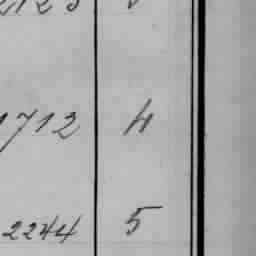 1712 4
2244 5